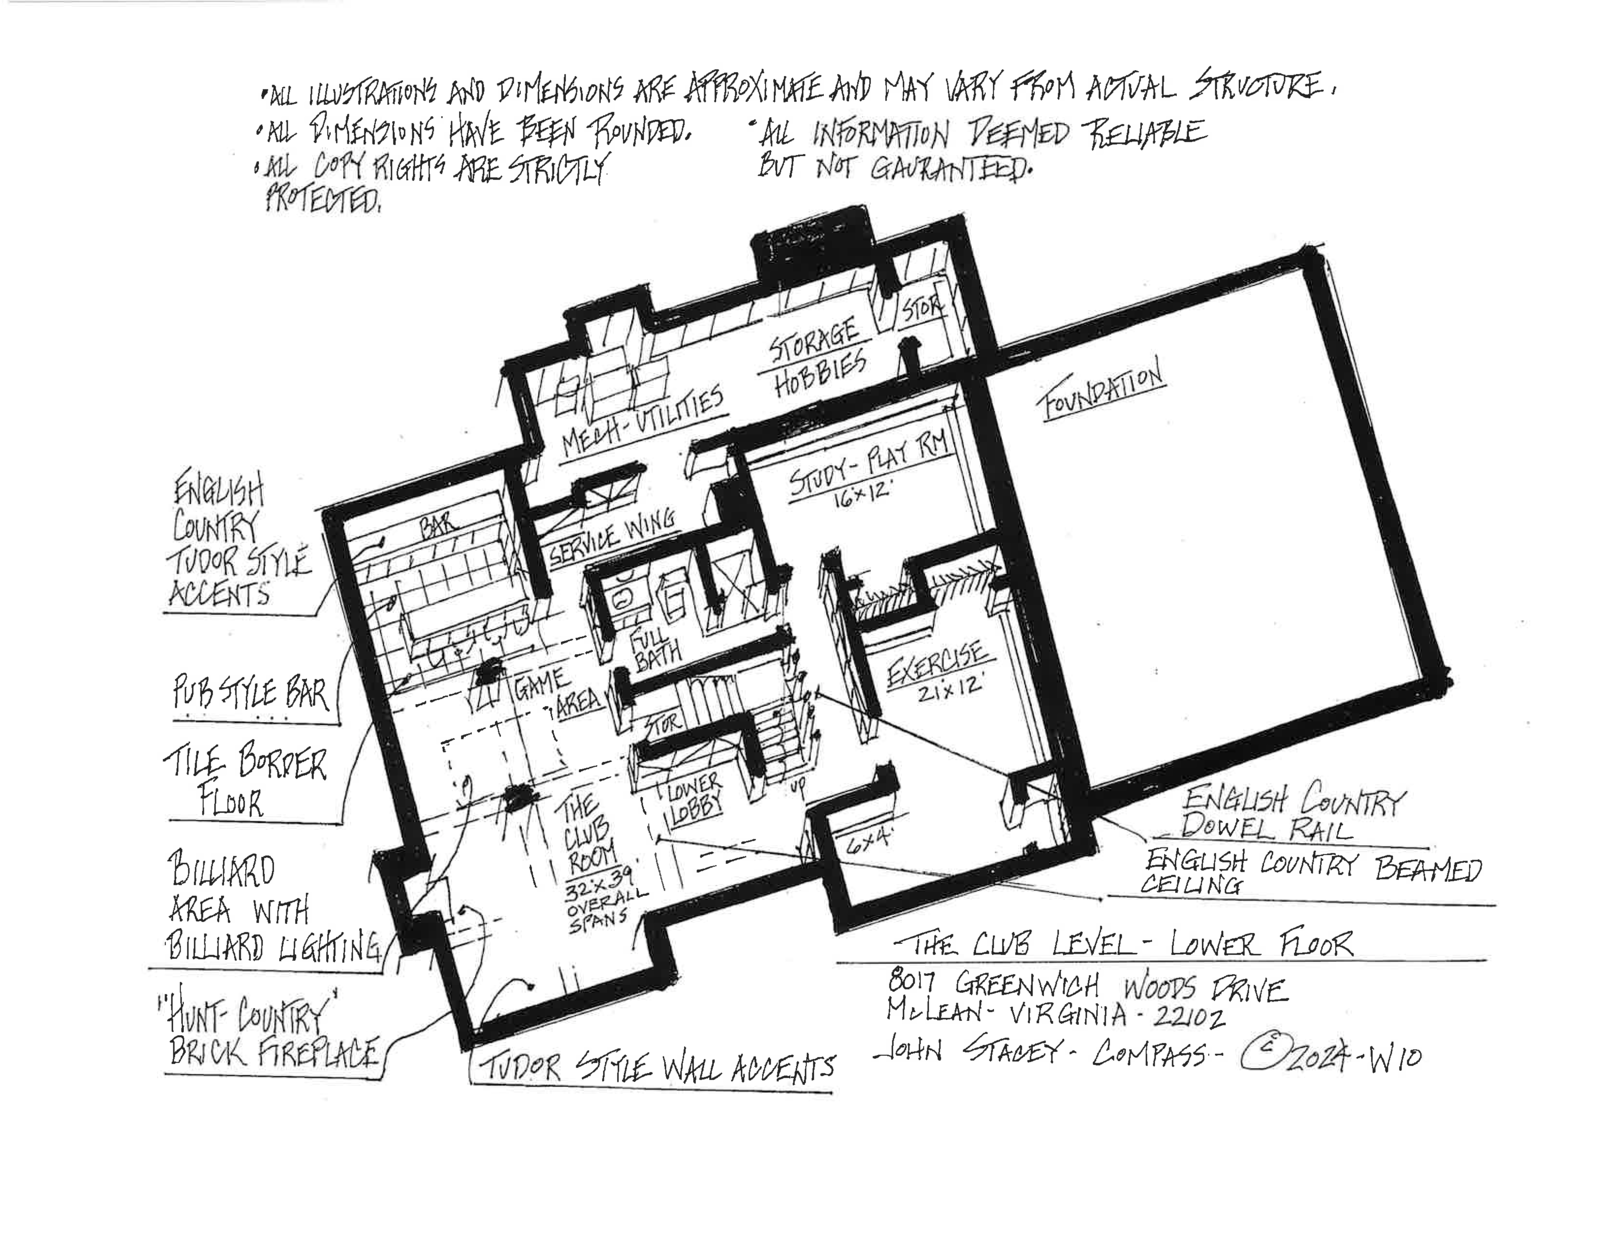 •ALL ILLUSTRATIONS AND DIMENSIONS ARE APPROXIMATE AND MAY VARY FROM ACTUAL STRUCTURE.
•ALL DIMENSIONS HAVE BEEN ROUNDED.
•ALL COPY RIGHTS ARE STRICTLY
PROTECTED.
•ALL INFORMATION DEEMED RELIABLE
BUT NOT GAURANTEED.
STOR
STORAGE
HOBBIES
MECH-UTILITIES
FOUNDATION
STUDY-PLAY RM
16'X12'
BAR
SERVICE WING
FULL
BATH
GAME
AREA
EXERCISE
21'X12'
STOR
LOWER
LOBBY
UP
THE
CLUB
ROOM
32'X39'
OVERALL
SPANS
6X4'
ENGLISH
COUNTRY
TUDOR STYLE
ACCENTS
PUB STYLE BAR
TILE BORDER
FLOOR
BILLIARD
AREA WITH
BILLIARD LIGHTING
"HUNT-COUNTRY"
BRICK FIREPLACE
TUDOR STYLE WALL ACCENTS
ENGLISH COUNTRY
DOWEL RAIL
ENGLISH COUNTRY BEAMED
CEILING
THE CLUB LEVEL-LOWER FLOOR
8017 GREENWICH WOODS DRIVE
McLEAN-VIRGINIA-22102
JOHN STACEY-COMPASS-©2024-W10